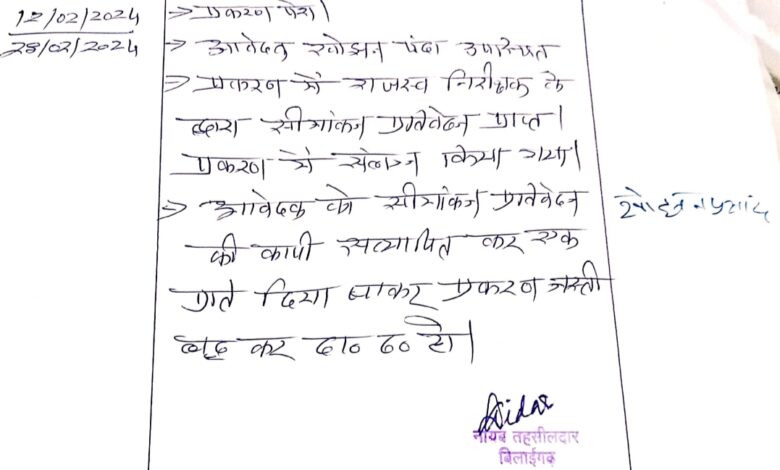 12/02/2024
28/02/2024
→ प्रकरण पेश।
→ आवेदक खोझन पंदा उपस्थित
→ प्रकरण में राजस्व निरीक्षक के
द्वारा सीमांकन प्रतिवेदन प्राप्त।
प्रकरण में संलग्न किया गया।
→ आवेदक को सीमांकन प्रतिवेदन
की कापी सत्यापित कर एक
प्रति दिया जाकर प्रकरण नस्ती
बद्ध कर दा० द० हो।
नायब तहसीलदार
बिलाईगढ़